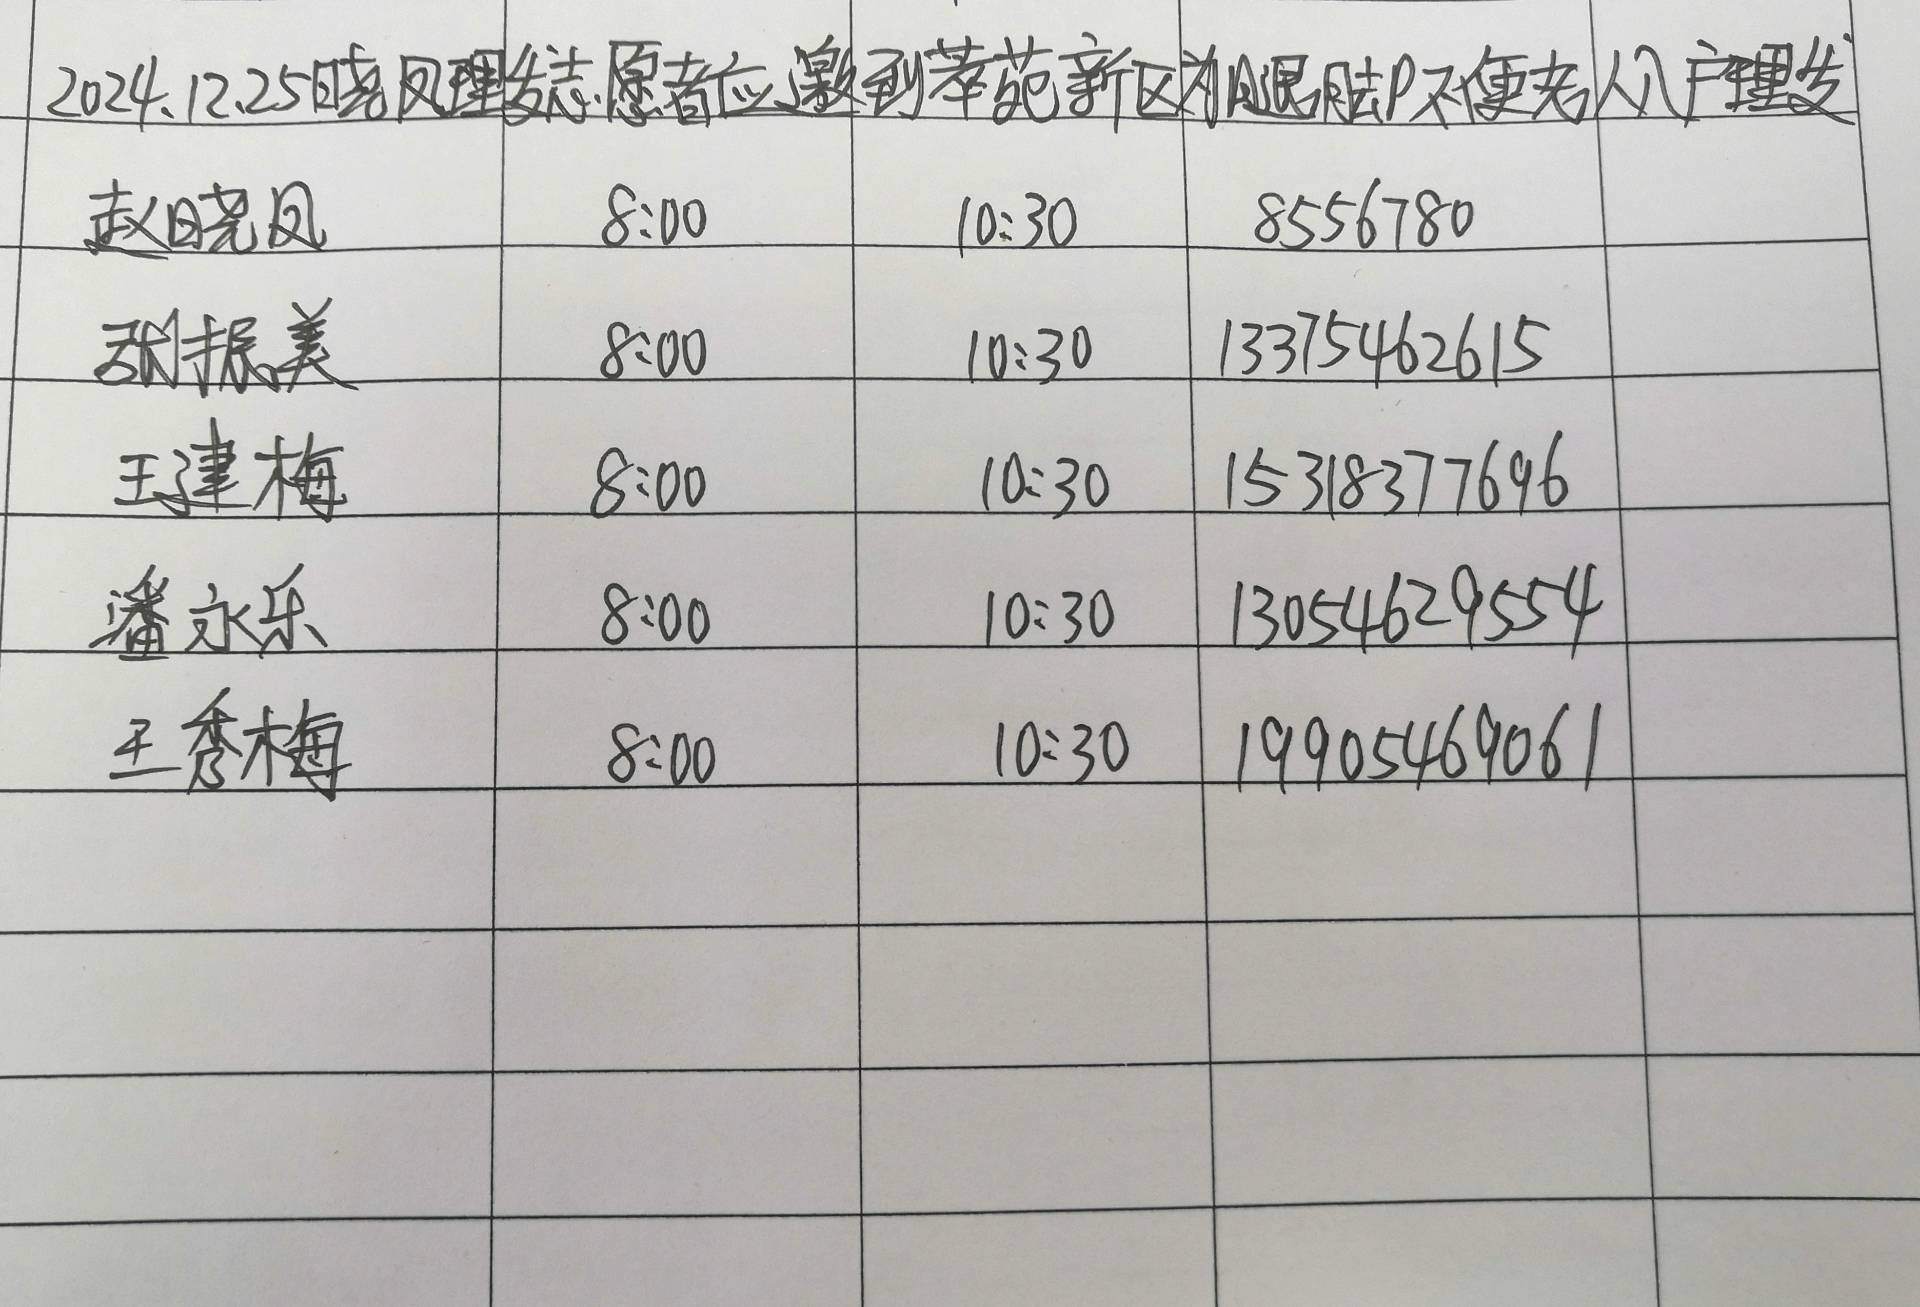 2024.12.25日晓凤理发志愿者应邀到莘苑新区为腿脚不便老人入户理发
赵晓凤 8:00 10:30 8556780
张振美 8:00 10:30 13375462615
王建梅 8:00 10:30 15318377696
潘永乐 8:00 10:30 13054629554
王秀梅 8:00 10:30 19905469061